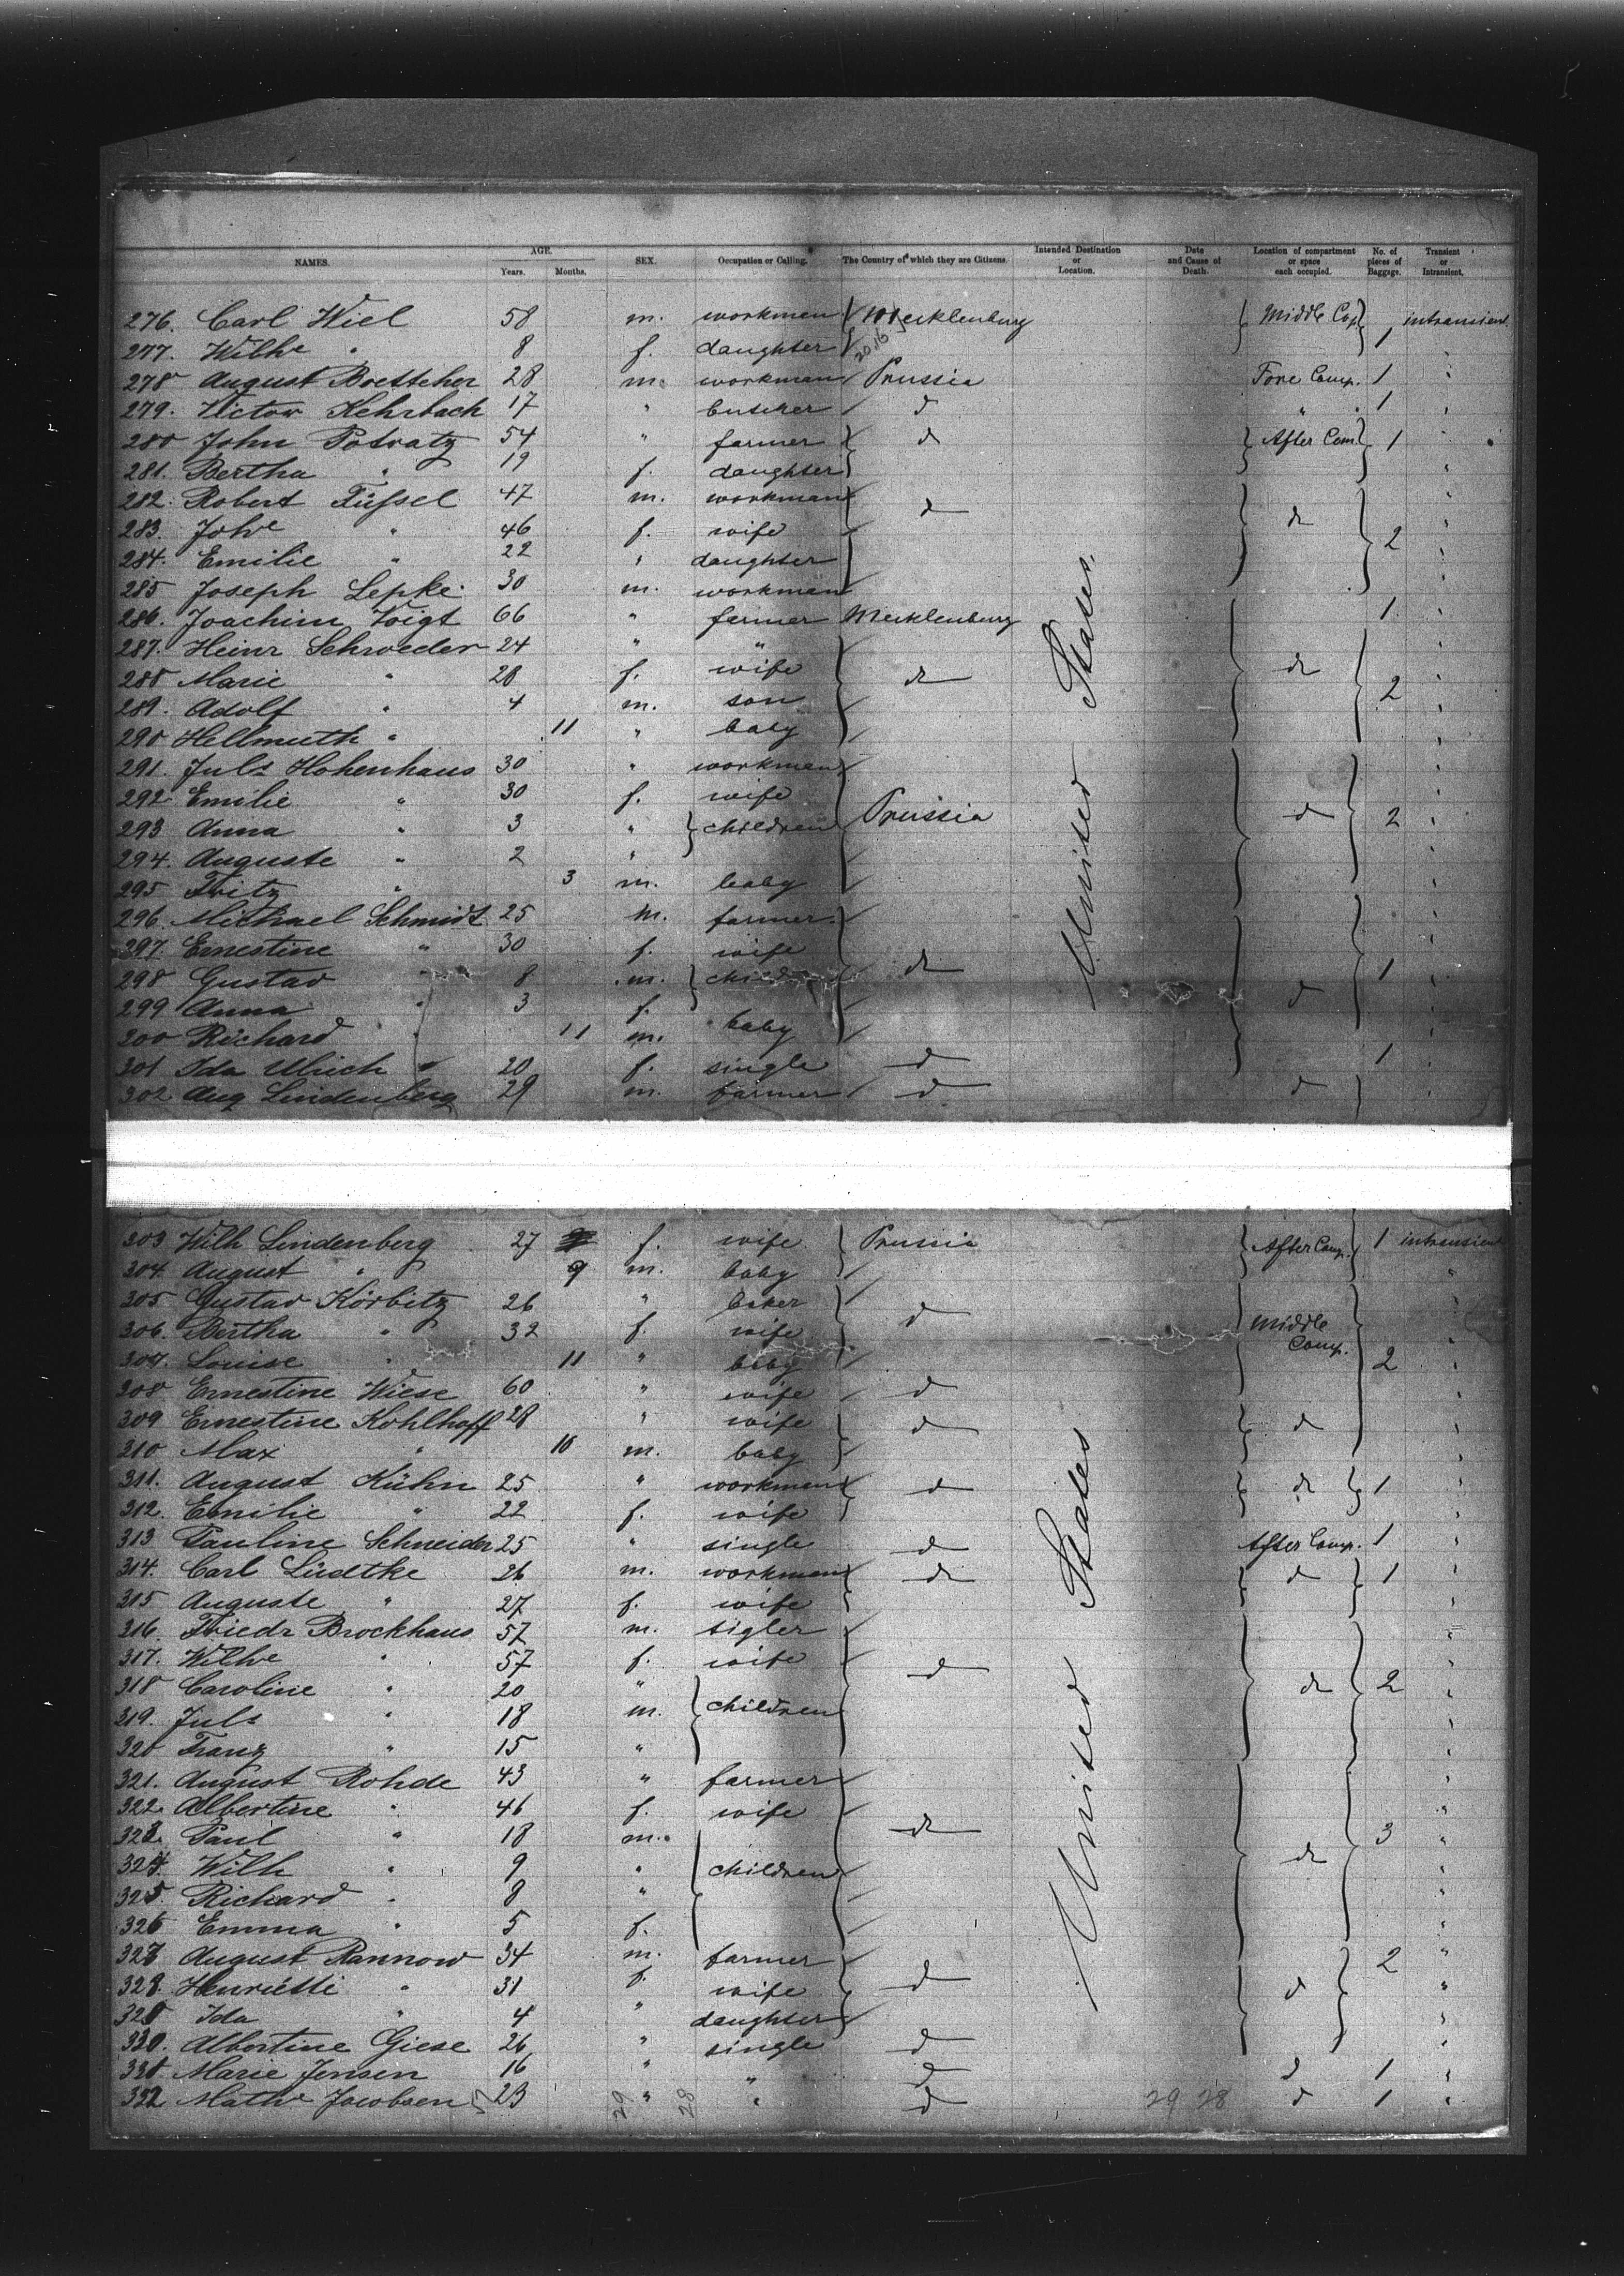 NAMES. AGE. Years. Months. SEX. Occupation or Calling. The Country of which they are Citizens. Intended Destination or Location. Date and Cause of Death. Location of compartment or space each occupied. No. of pieces of Baggage. Transient or Intransient.
276. Carl Wiel 58 m. workman Mecklenburg Middle Cop. 1 intransient
277. Wilhe " 8 f. daughter
278 August Boettcher 28 m. workman Prussia Fore Comp. 1 "
279. Victor Kehrbach 17 " butcher d " " 1 "
280 John Potratz 54 " farmer d After Com. 1 "
281. Bertha " 19 f. daughter "
282. Robert Füssel 47 m. workman d d "
283. Johe " 46 f. wife 2 "
284. Emilie " 22 " daughter "
285 Joseph Lepke 30 m. workman "
286. Joachim Voigt 66 " farmer Mecklenburg 1 "
287. Heinr Schroeder 24 " " "
288 Marie " 28 f. wife d d "
289. Adolf " 4 m. son 2 "
290 Hellmuth " 11 " baby "
291. Juls Hohenhaus 30 " workman "
292 Emilie " 30 f. wife "
293 Anna " 3 " children Prussia d 2 "
294. Auguste " 2 " "
295 Fritz " 3 m. baby "
296. Michael Schmidt 25 m. farmer "
297. Ernestine " 30 f. wife "
298 Gustav " 8 m. d 1 "
299 Anna " 3 f. d "
200 Richard " 11 m. baby "
301 Ida Ulrich " 20 f. single d 1 "
302 Aug Lindenberg 29 m. farmer d d "
United States.
303 Wilh Lindenberg 27 f. wife Prussia After Comp. 1 intransient
304 August " 9 m. baby "
305 Gustav Körbitz 26 " baker d "
306. Bertha " 32 f. wife Middle Comp. "
307. Louise " 11 " baby 2 "
308 Ernestine Wiese 60 " wife d "
309 Ernestine Kohlhoff 28 " wife d d "
310 Max " 10 m. baby "
311. August Kühn 25 " workman d d 1 "
312. Emilie " 22 f. wife "
313 Pauline Schneider 25 " single d After Comp. 1 "
314. Carl Lüdtke 26 m. workman d d 1 "
315 Auguste " 27 f. wife "
316. Friedr Brockhaus 57 m. sigler "
317. Wilhe " 57 f. wife d "
318 Caroline " 20 " children d 2 "
319. Juls " 18 m. "
320 Franz " 15 " "
321. August Rohde 43 " farmer "
322 Albertine " 46 f. wife "
323. Paul " 18 m. d 3 "
324. Wilh " 9 " children d "
325. Richard " 8 " "
326 Emma " 5 f. "
327 August Rannow 34 m. farmer 2 "
328. Henrietti " 31 f. wife d d "
329 Ida " 4 " daughter "
330. Albertine Giese 26 " single d "
331 Marie Jensen 16 " " d d 1 "
332 Mathe Jacobsen 23 " " d d 1 "
United States
29 28 29 28